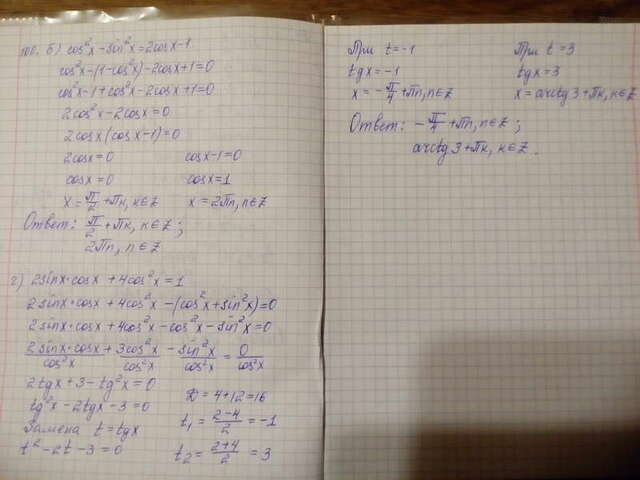 100. б) cos²x - sin²x = 2cosx - 1
cos²x - (1 - cos²x) - 2cosx + 1 = 0
cos²x - 1 + cos²x - 2cosx + 1 = 0
2cos²x - 2cosx = 0
2cosx (cosx - 1) = 0
2cosx = 0 cosx - 1 = 0
cosx = 0 cosx = 1
x = π/2 + πk, k∈Z x = 2πn, n∈Z
Ответ: π/2 + πk, k∈Z ;
2πn, n∈Z
г) 2sinx·cosx + 4cos²x = 1
2sinx·cosx + 4cos²x - (cos²x + sin²x) = 0
2sinx·cosx + 4cos²x - cos²x - sin²x = 0
2sinx·cosx/cos²x + 3cos²x/cos²x - sin²x/cos²x = 0/cos²x
2tgx + 3 - tg²x = 0
tg²x - 2tgx - 3 = 0
Замена t = tgx
t² - 2t - 3 = 0
D = 4 + 12 = 16
t₁ = (2-4)/2 = -1
t₂ = (2+4)/2 = 3
При t = -1 При t = 3
tgx = -1 tgx = 3
x = -π/4 + πn, n∈Z x = arctg3 + πk, k∈Z
Ответ: -π/4 + πn, n∈Z ;
arctg3 + πk, k∈Z.